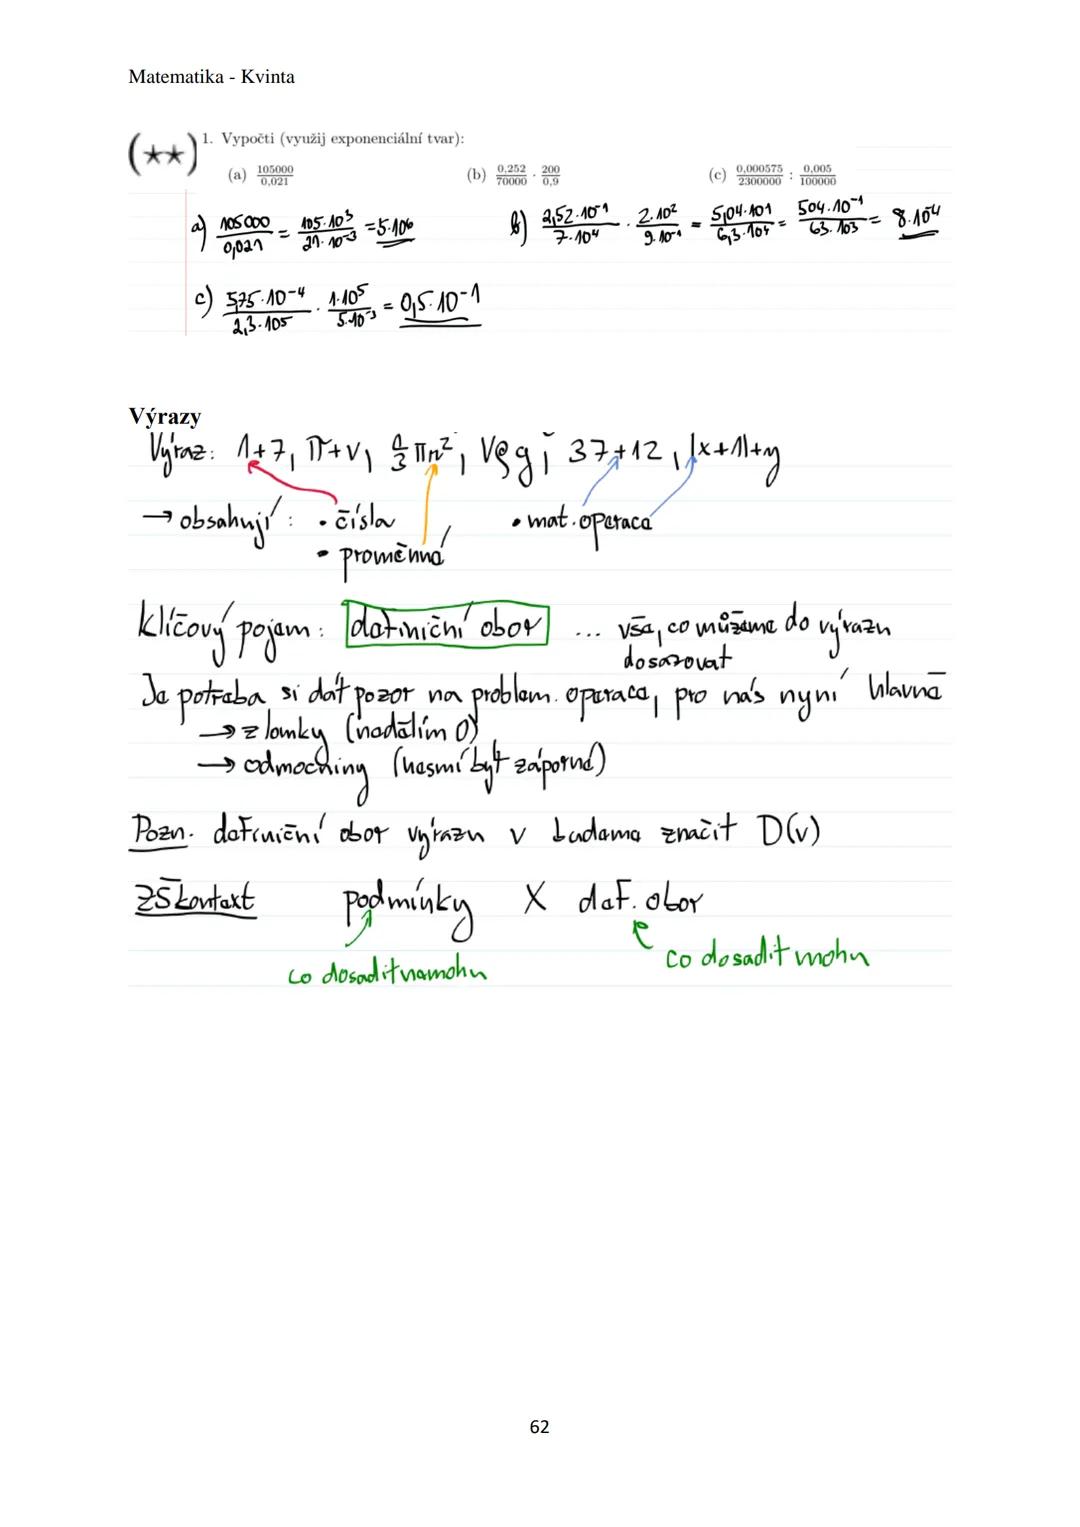 Matematika - Kvinta
(★★) 1. Vypočti (využij exponenciální tvar):
(a) 105000/0,021 (b) 0,252/70000 · 200/0,9 (c) 0,000575/2300000 : 0,005/100000
a) 105000/0,021 = 105·10³/21·10⁻³ = 5·10⁶ b) 2,52·10⁻¹/7·10⁴ · 2·10²/9·10⁻¹ = 5,04·10¹/6,3·10⁴ = 504·10⁻¹/63·10³ = 8·10⁻⁴
c) 5,75·10⁻⁴/2,3·10⁵ · 1·10⁵/5·10⁻³ = 0,5·10⁻¹
Výrazy
Výraz: 1+7, π+v, 1/3 πr², Vϱg; 37+12, |x+1|+y
→ obsahují: • čísla • mat. operace
• proměnné
klíčový pojem: definiční obor ... vše, co můžeme do výrazu
dosazovat
Je potřeba si dát pozor na problem. operace, pro nás nyní hlavně
→ zlomky (nedělím 0)
→ odmocniny (nesmí být záporné)
Pozn. definiční obor výrazu v budeme značit D(v)
ZŠ kontext podmínky X def. obor
co dosadit nemohu co dosadit mohu
62